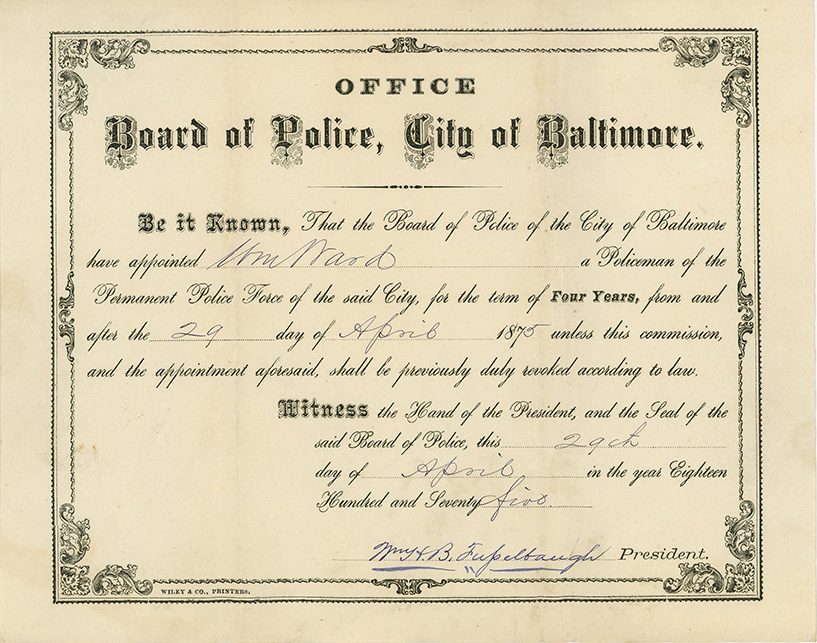 OFFICE
Board of Police, City of Baltimore.
Be it Known, That the Board of Police of the City of Baltimore
have appointed Wm Ward a Policeman of the
Permanent Police Force of the said City, for the term of Four Years, from and
after the 29 day of April 1875 unless this commission,
and the appointment aforesaid, shall be previously duly revoked according to law.
Witness the Hand of the President, and the Seal of the
said Board of Police, this 29th
day of April in the year Eighteen
Hundred and Seventy five.
Wm H. B. Fusselbaugh President.
WILEY & CO., PRINTERS.